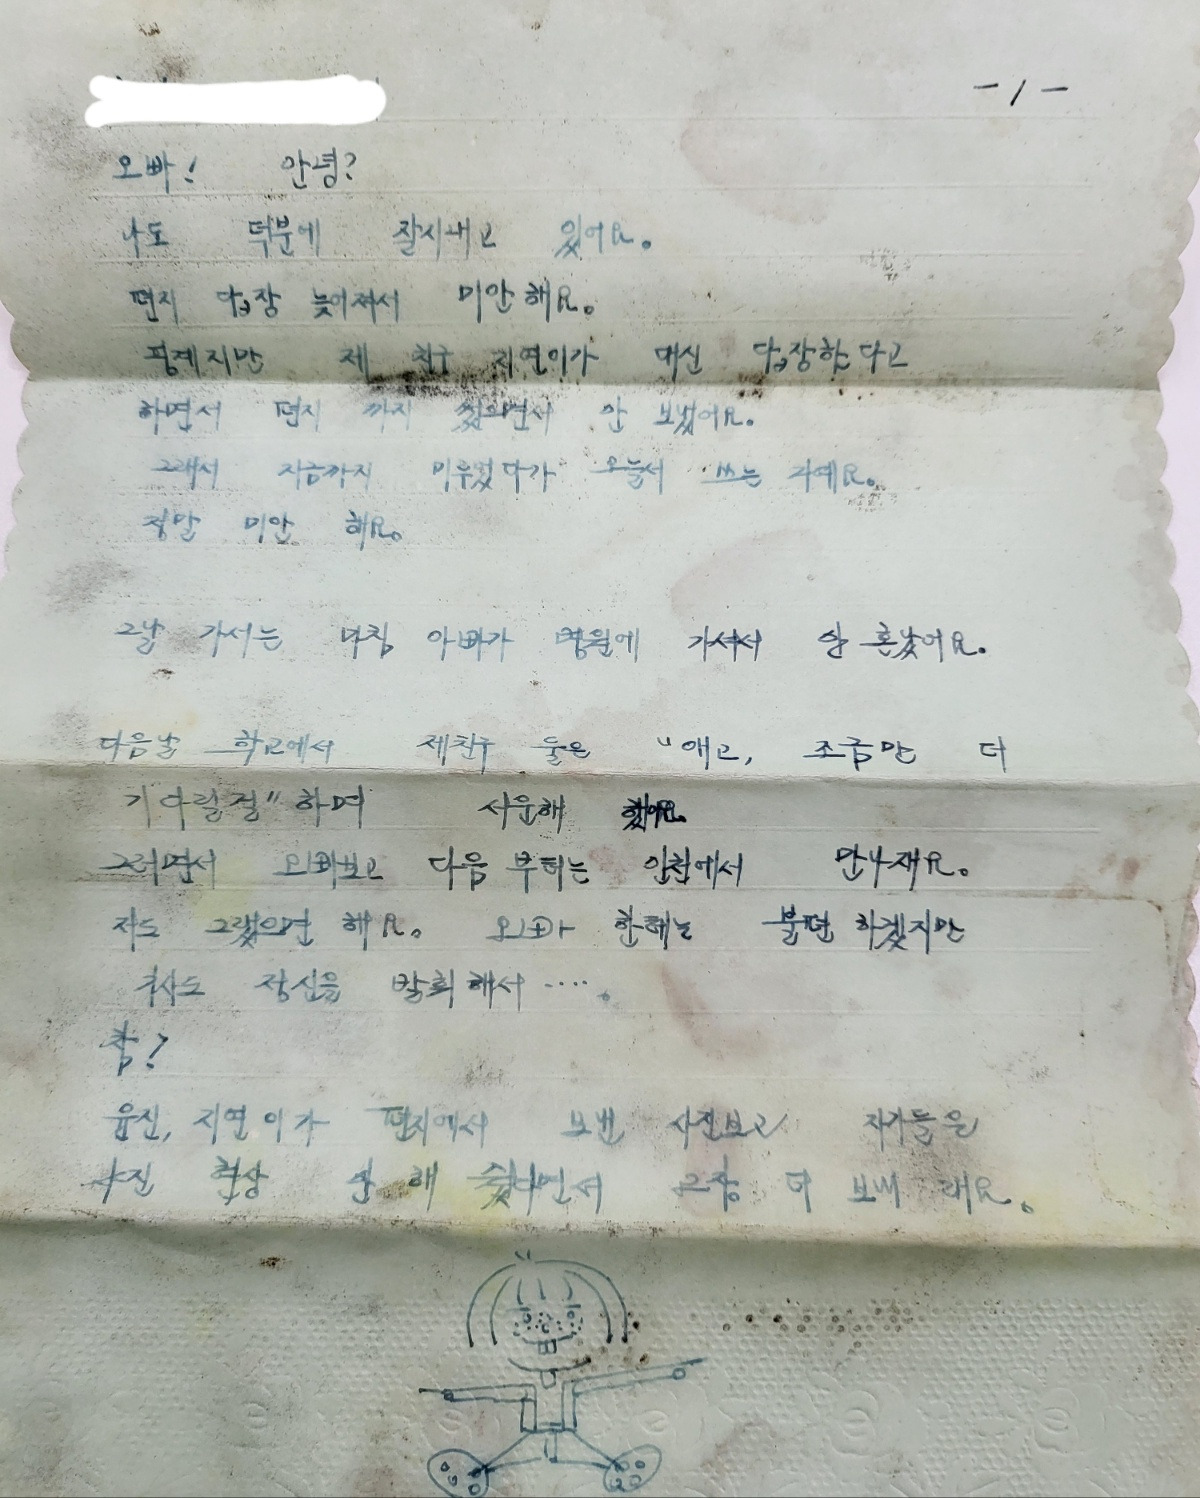 -1-
오빠! 안녕?
나도 덕분에 잘지내고 있어요.
편지 답장 늦어져서 미안해요.
핑계지만 제 친구 지연이가 대신 답장한다고
하면서 편지 까지 썼으면서 안 보냈어요.
그래서 지금까지 미루었다가 오늘서 쓰는 거예요.
정말 미안 해요.
그날 가서는 마침 아빠가 병원에 가셔서 안 혼났어요.
다음날 학교에서 제친구 둘은 "애고, 조금만 더
기다릴걸" 하며 서운해 했어요.
그러면서 오빠보고 다음 부터는 인천에서 만나재요.
저도 그랬으면 해요. 오빠 한테는 불편 하겠지만
정신을 발휘해서 ‥‥.
참!
윤진, 지연이가 편지에서 보낸 사진보고 자기들은
사진 현상 안 해 줬다면서 2장 더 보내 래요.